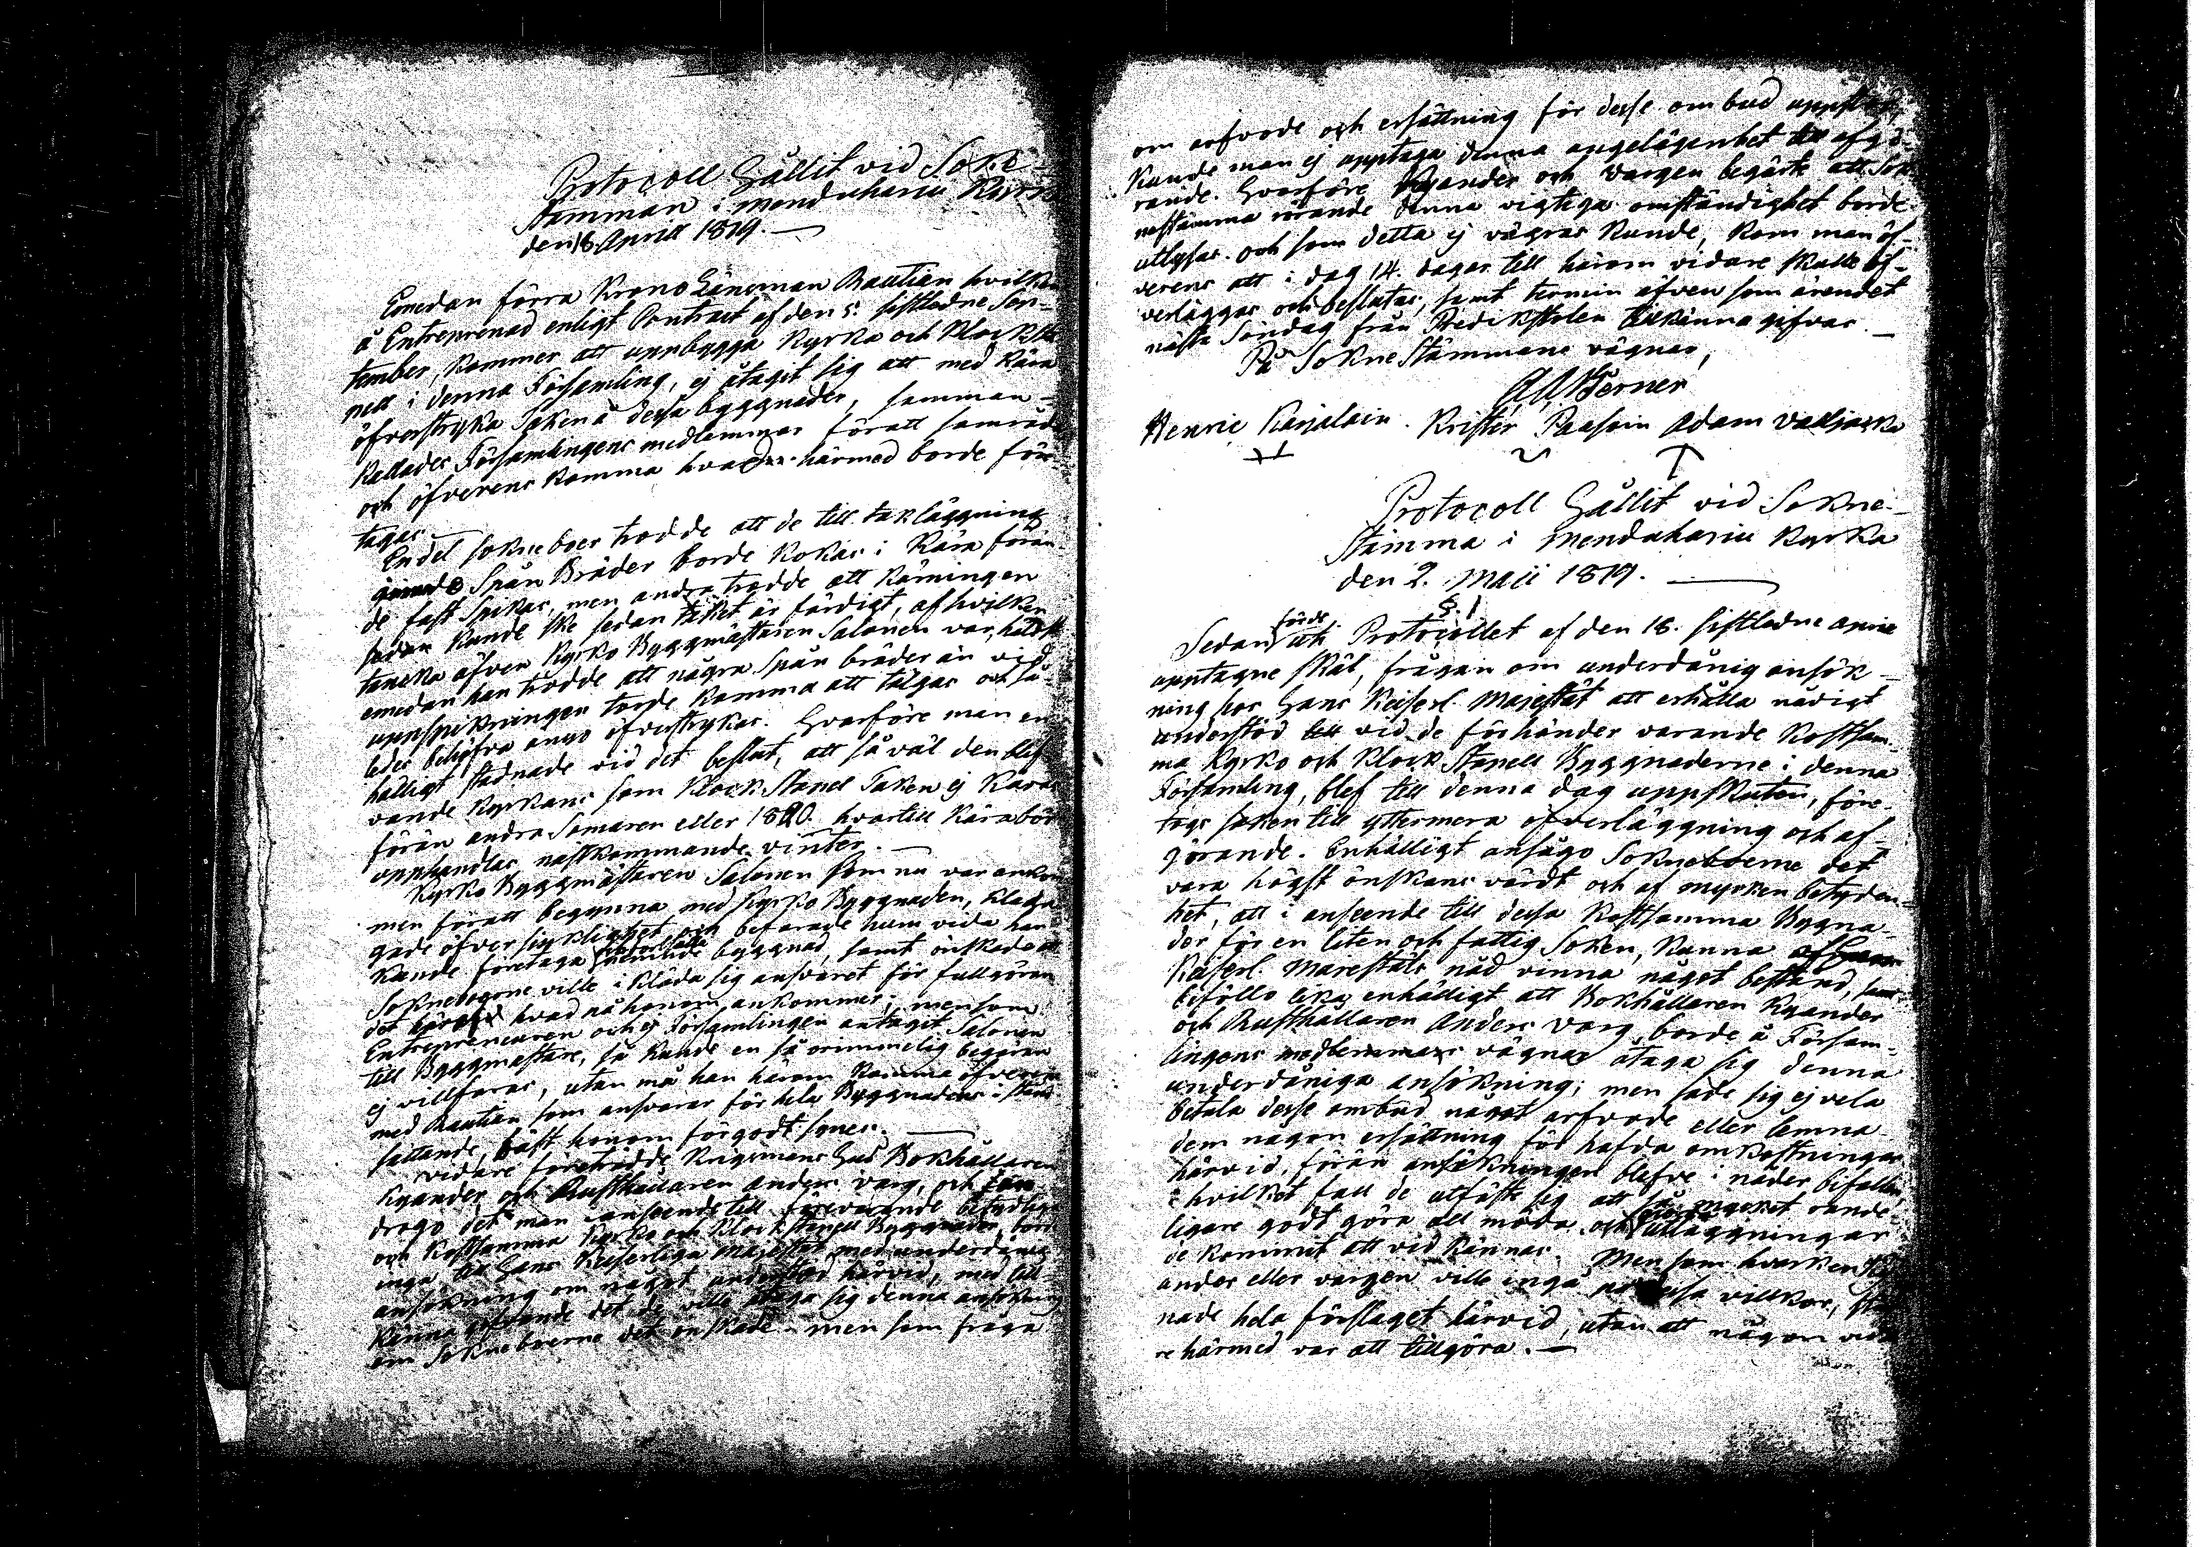 Protocoll hållit vid Sokne-
stämman i Menduharju Kyrka
den 18 April 1819.
Emedan förra Krono Länsman Bautian hvilken
å Entreprenad enligt Contract af den 5: sistledne Sep-
tember, kommer att uppbygga Kyrka och Klocksta
pell i denna Församling, ej åtagit sig att med kära
öfverstryka Taken å dessa byggnader, samman-
kallades Församlingens medlemmar för att samråda
och öfverens komma hvad härmed borde före-
tagas.
En del sokneboer trodde att de till takläggning
Spån Bräder borde kokas i kära förän
de fast spikas, men andra trodde att kärningen
sedan kunde ske sedan taket är färdigt, af hvilken
tancka äfven Kyrko Byggmästaren Salonen var,
emedan han trodde att några spån bräder än vid
uppspikningen torde komma att tälgas och så-
ledes behöfva ånyo öfverstrykas. Hvarföre man en-
hälligt stadnade vid det beslut, att så väl den blif-
vande Kyrkans som Klock Stapel Taken ej käras
förän andra Sommaren eller 1820. hvartill kära bör
upphandlas nästkommande vinter.
Kyrko Byggmästaren Salonen som nu var ankom-
men för att begynna med Kyrko Byggnaden, klaga
gade öfver sjuklighet och befarade hum vida han
kunde företaga byggnad, samt önskade att
Sokneboerne ville ikläda sig ansvaret för fullgöran
det hvad på honom ankommer; men som
Entrepreneuren och ej Församlingen antagit Salonen
till Byggmästare, så kunde en så orimmelig begäran
ej villfaras, utan må han härom komma öfverens
med Bautian som ansvarar för hela Byggnadens i stånd
sättande, bäst honom för godt synes.
Vidare företrädde Krigsmans Hus Bokhållaren
Kyander och Rusthållaren Anders Varg, och
drogo det man i anseende till förevarande betydliga
och kostsamma Kyrko och Klockstapell Byggnader, borde
ingå till Hans Keiserliga Majestät med underdånig
ansökning om något understöd härvid, med till-
känna gifvande det de ville åtaga sig denna ansökning
om Sokneboerne det önskade - men som fråga
om arfvode och ersättning för desse ombud uppstod,
kunde man ej upptaga denna angelägenhet till afgö-
rande. Hvarföre Kyander och Vargen begärte att Sok
nestämma rörande denna vigtiga omständighet borde
utlysas. och som detta ej vägras kunde, kom man öf-
verens att i dag 14. dagar till härom vidare skulle öf-
verläggas och beslutas, samt termin äfven som ärendet
nästa Söndag från Predikstolen tillkänna gifvas.
På Sokne Stämmans vägnar,
Henric Karjalain. Krister Paasoin Adam Valkjarki
Protocoll hållit vid Sokne-
Stämma i Menduharju Kyrka
den 2. Maji 1819.
§. 1
Sedan uti Protocollet af den 18. sistledne April
förde
upptagne skäl, frågan om underdånig ansök-
ning hos Hans Keiserl. Majestät att erhålla nådigt
understöd till vid de förhänder varande kostsam-
ma Kyrko och Klock Stapell Byggnaderne i denna
Församling, blef till denna dag uppskuten, före-
togs saken till yttermera öfverläggning och af-
görande. Enhälligt ansågo Sokneboerne det
vara högst önskans värdt och af mycken betyden-
het, att i anseende till dessa kostsamma Bygna-
der för en liten och fattig Soken, kunna
Keiserl. Majestäts nåd vinna något bestånd, samt
biföllo lika enhälligt att Bokhållaren Kyander
och Rusthållaren Anders Varg, borde å Försam-
lingens medlemmars vägnar åtaga sig denna
underdåniga ansökning; men sade sig ej vela
betala desse ombud något arfvode eller lemna
dem någon ersättning för hafda omkostningar
härvid, förän ansökningen blefve i nåder bifallen,
i hvilket fall de utfäste sig att
ligare godt göra all möda och utläggningar
de kommit att vid kännas. Men som hvarken Ky
ander eller Vargen ville ingå på dessa villkor, stad
nade hela förslaget härvid, utan att någon vida
re härmed var att tillgöra.